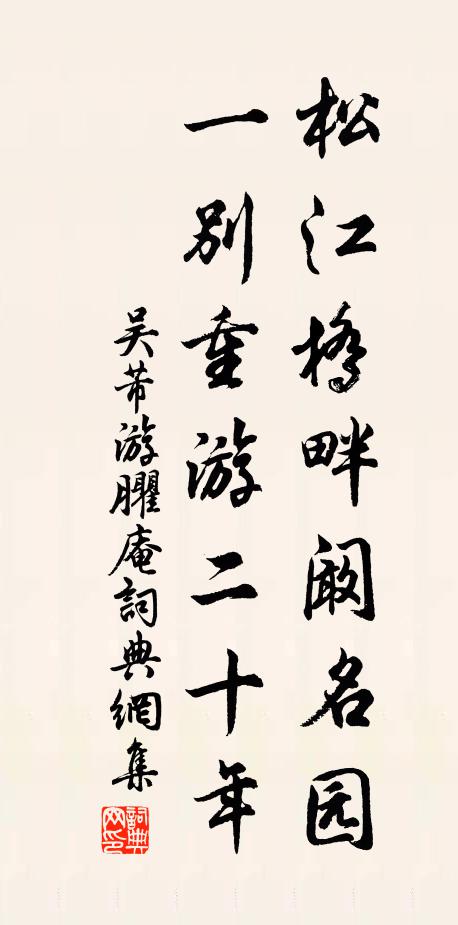 松江桥畔阚名园
一别重游二十年
吴芾游臞庵词典網集
詞典网印